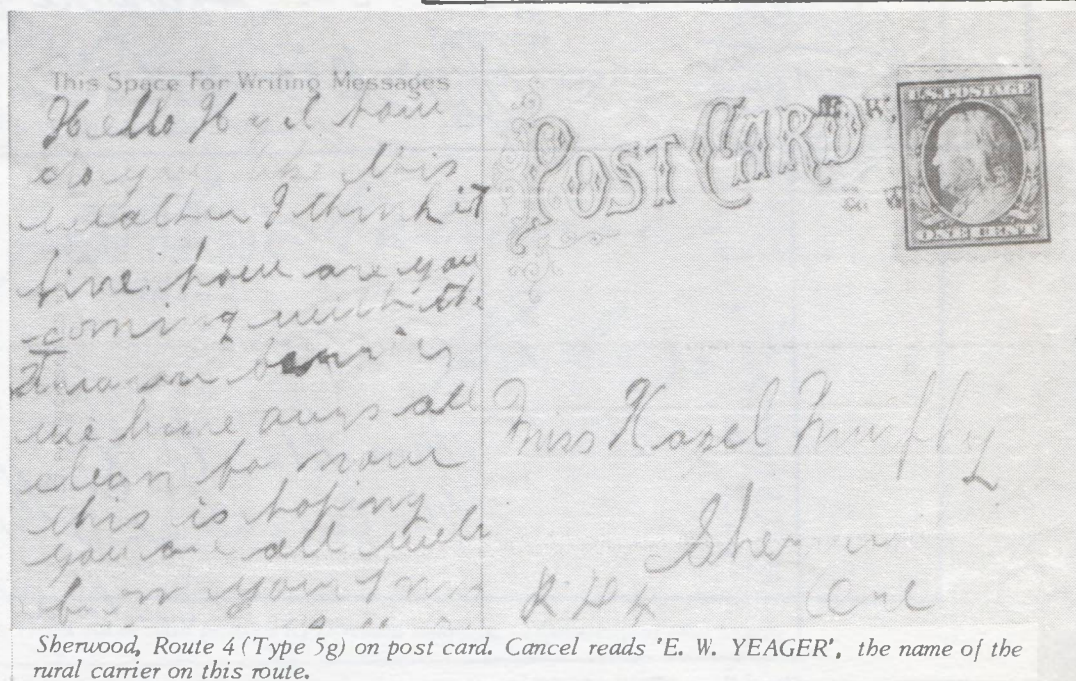 This Space For Writing Messages
Hello how
do you this
weather I think it
fine. how are you
coming with the
we have ours all
clean to now
this is hoping
you are all well
POST CARD
U.S. POSTAGE
ONE CENT
Miss Hazel Murphy
Sher
R
Sherwood, Route 4 (Type 5g) on post card. Cancel reads 'E. W. YEAGER', the name of the
rural carrier on this route.